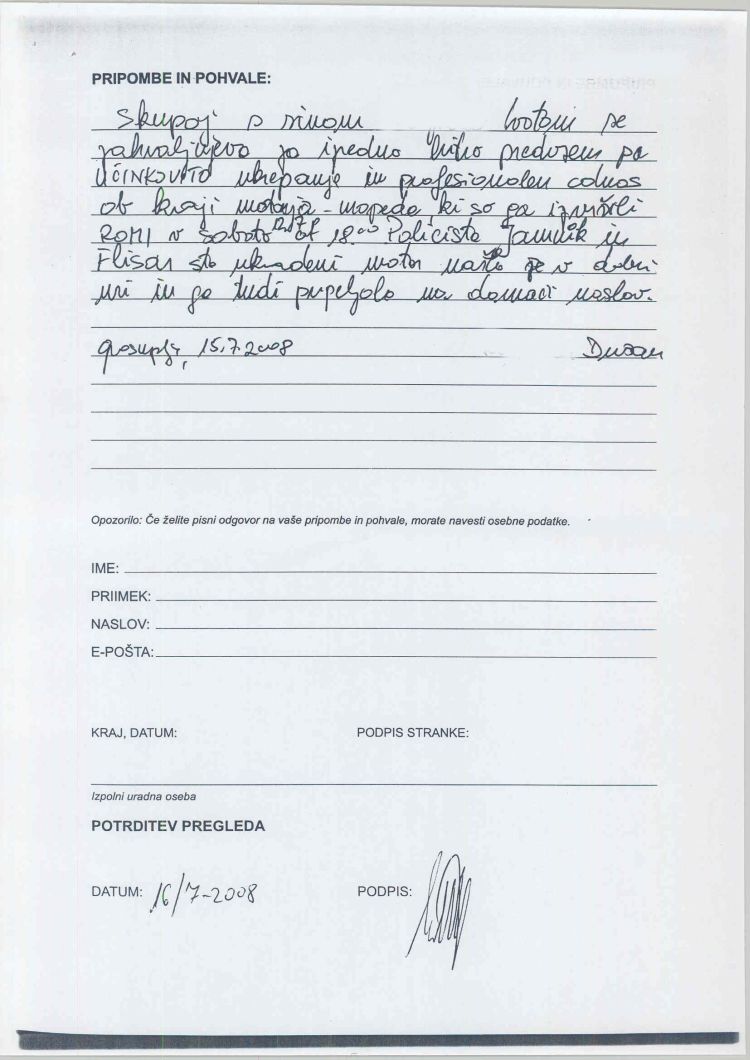 PRIPOMBE IN POHVALE:
Skupaj s sinom Boštjan se
zahvaljujeva za izredno hitro predvsem pa
UČINKOVITO ukrepanje in profesionalen odnos
ob kraji motorja - mopeda, ki so ga izvršili
ROMI v soboto 12.7. ob 18.00 Policista Jamnik in
Flisar sta ukradeni motor našla že v dobri
uri in ga tudi pripeljala na domači naslov.
Grosuplje, 15.7.2008 Dušan
Opozorilo: Če želite pisni odgovor na vaše pripombe in pohvale, morate navesti osebne podatke.
IME:
PRIIMEK:
NASLOV:
E-POŠTA:
KRAJ, DATUM: PODPIS STRANKE:
Izpolni uradna oseba
POTRDITEV PREGLEDA
DATUM: 16/7-2008 PODPIS: